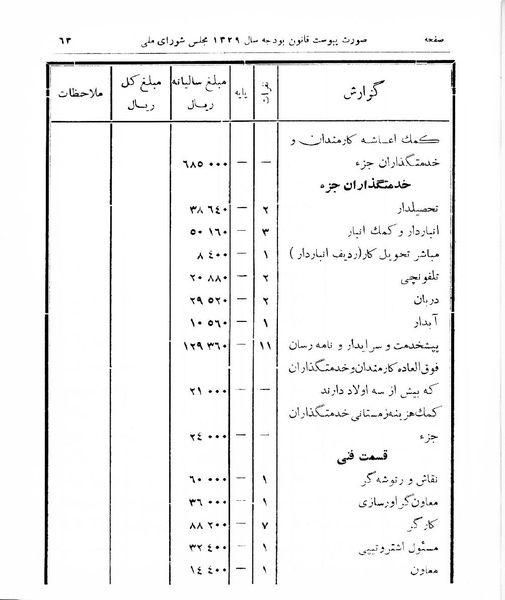 صفحه صورت پیوست قانون بودجه سال ۱۳۲۹ مجلس شورای ملی ۶۳
گزارش نفرات پایه مبلغ سالیانه ریال مبلغ کل ریال ملاحظات
کمك اعاشه کارمندان و
خدمتگذاران جزء — — ۶۸۵ ۰۰۰
خدمتگذاران جزء
تحصیلدار ۲ — ۳۸ ۶٤۰
انباردار و کمك انبار ۳ — ۵۰ ۱۶۰
مباشر تحویل کار(ردیف انباردار ) ۱ — ۸ ٤۰۰
تلفونچی ۲ — ۲۰ ۸۸۰
دربان ۲ — ۲۹ ۵۲۰
آبدار ۱ — ۱۰ ۵۶۰
پیشخدمت و سرایدار و نامه رسان ۱۱ — ۱۲۹ ۳۶۰
فوق العاده کارمندان و خدمتگذاران
که بیش از سه اولاد دارند — — ۲۱ ۰۰۰
کمك هزینه زمستانی خدمتگذاران
جزء — — ۲٤ ۰۰۰
قسمت فنی
نقاش و رتوشه گر ۱ — ۶۰ ۰۰۰
معاون گراورسازی ۱ — ۳۶ ۰۰۰
کارگر ۷ — ۸۸ ۲۰۰
مسئول اشتروتیپی ۱ — ۳۲ ٤۰۰
معاون ۱ — ۱٤ ٤۰۰